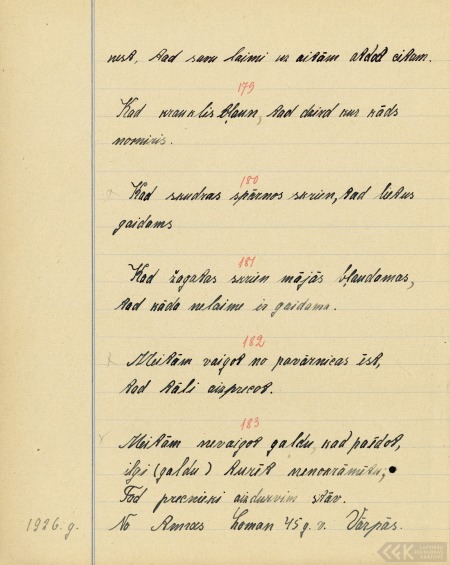 nest, tad savu laimi un aitām atdot citam.
179
Kad krauklis bļaun, tad dzird kur kāds
nomiris.
180
Kad skudras spārnos skrien, tad lietus
gaidams
181
Kad žagatas skrien mājās bļaudamas,
tad kāda nelaime ir gaidama.
182
Meitām vaigot no pavārnicas ēst,
tad tāli aizprecot.
183
Meitām nevaigot galdu, kad paēdot,
ilgi (galdu) turēt nenokrāmētu;
Tod precnieki aizdurvim stāv.
1926. g. No Annas Loman 45 g. v. Vārpās.